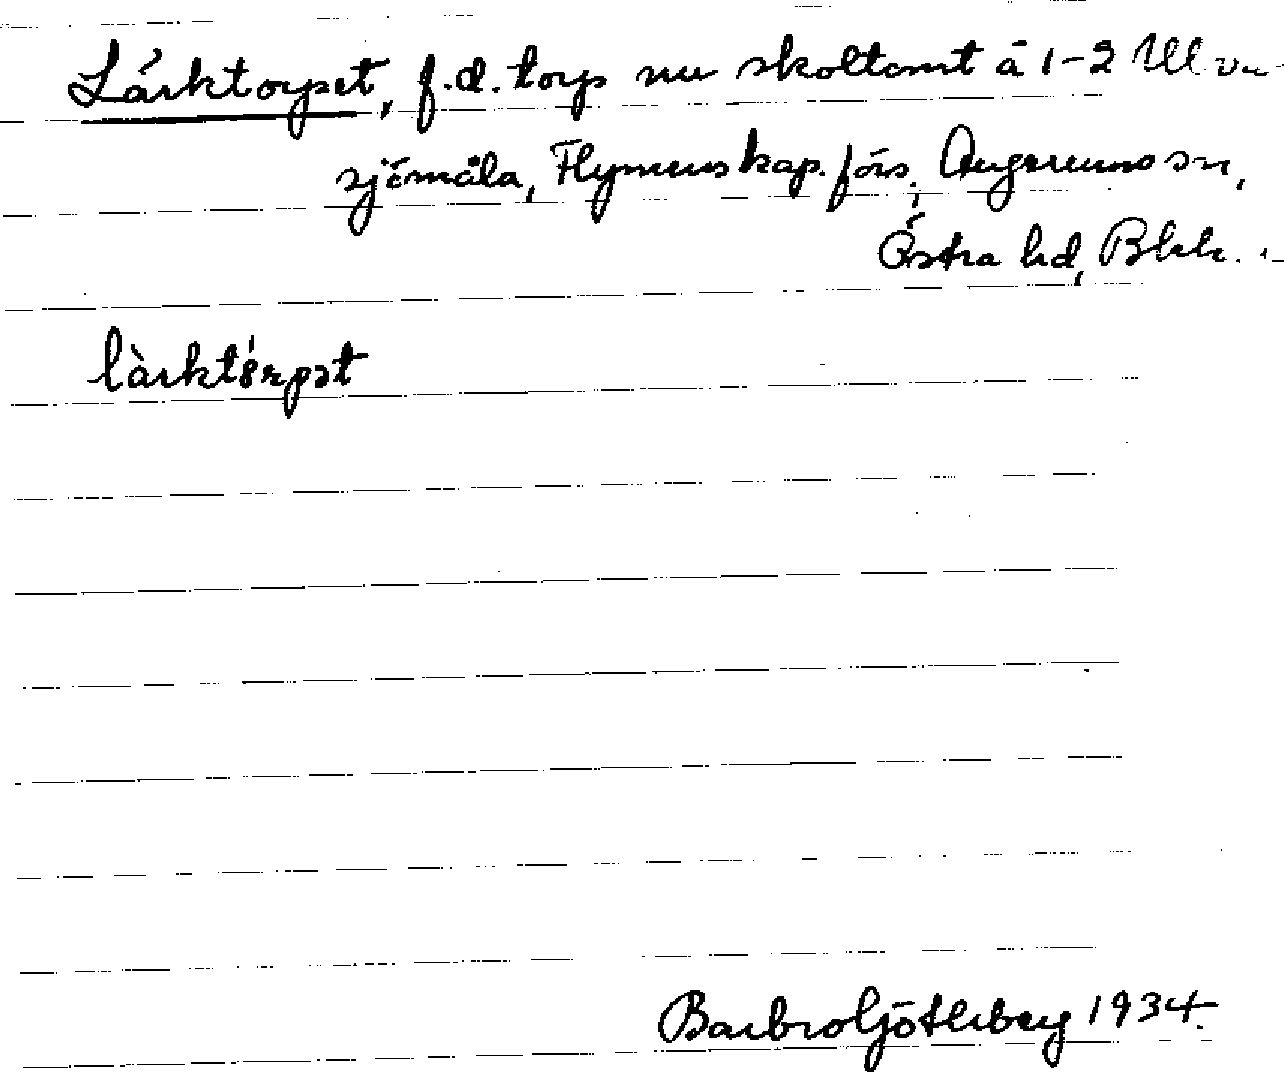 Lärktorpet, f.d. torp nu skoltomt å 1-2 Ulva-
sjömåla, Flymens kap. förs., Augerums sn,
Östra hd, Blek.
làrktörpət
Barbro Götlberg 1934.